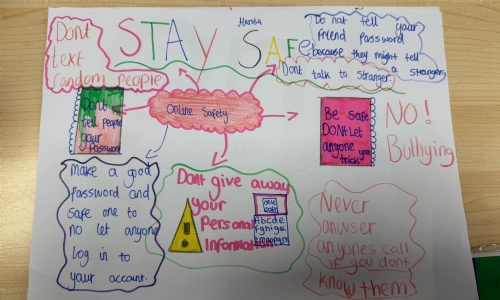 Dont
text
random people
STAY SAFe
Do not tell your
friend password
because they might tell
a stranger
Dont talk to stranger.
Dont
tell people
your
Password
Online Safety
Be safe
DONt Let
anyone you
trick
NO!
Bullying
Make a good
Password and
safe one to
no let anyone
Log in to
your account.
Dont give away
your
Personal
Information
Never
anwser
anyones call
if you dont
know them